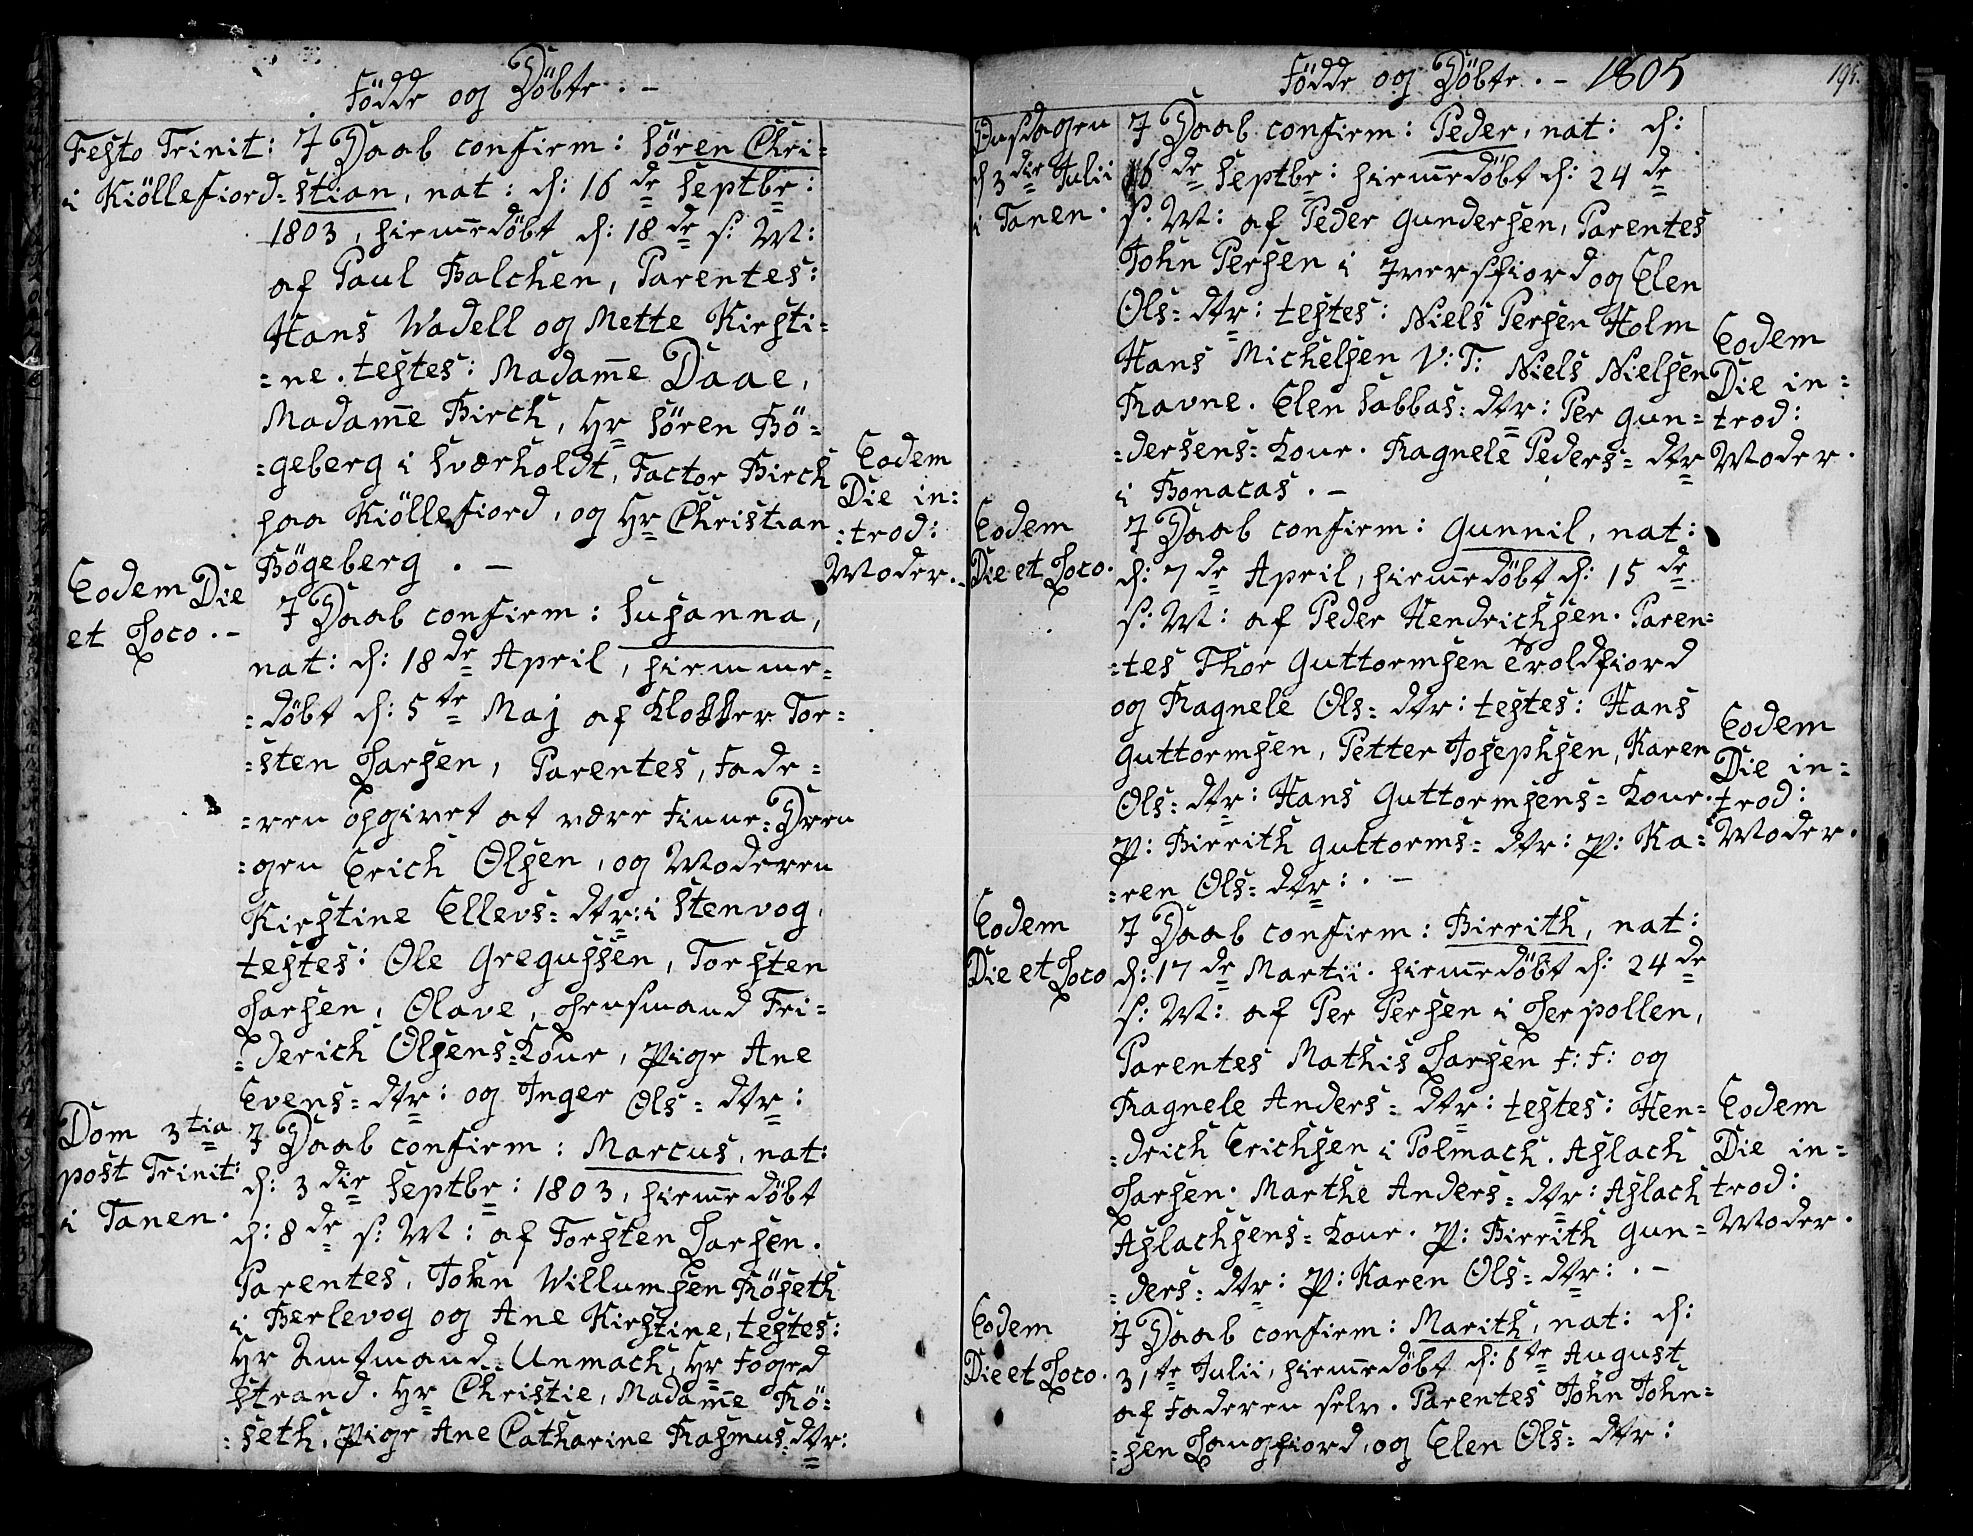 Födde og Döbte. -
Festo Trinit:
i Kiöllefiord.
I Daab confirm: Sören Chri-
stian, nat: d: 16de Septbr:
1803, hiemmedöbt d: 18de s: M:
af Paul Balchen, Parentes:
Hans Wadell og Mette Kirsti-
=ne. testes: Madame Daae,
Madame Birch, Hr Sören Bö-
=geberg i Sværholdt, Factor Birch
paa Kiöllefiord, og Hr Christian
Bögeberg. -
Eodem
Die in:
=trod:
Moder.
Eodem Die
et Loco. -
I Daab confirm: Susanna,
nat: d: 18de April, hiemme-
=döbt d: 5te Maj af Klokker Tor-
=sten Larsen, Parentes, Fade-
=ren opgivet at være Finne-Dren
=gen Erich Olsen, og Moderen
Kirstine Ellevs-dtr: i Stenvog.
testes: Ole Gregussen, Torsten
Larsen, Olave, Lensmand Fri-
=derich Olsens-Kone, Pige Ane
Evens-dtr: og Inger Ols-dtr:
Dom 3tia
post Trinit:
i Tanen.
I Daab confirm: Marcus, nat:
d: 3die Septbr: 1803, hiemmedöbt
d: 8de s: M: af Torsten Larsen.
Parentes, John Willumsen Röseth
i Berlevog og Ane Kirstine, testes:
Hr Amtmand Unmach, Hr Foged
Strand. Hr Christie, Madame Rö-
=seth, Pige Ane Catharine Rasmus-dtr:
Födde og Döbte. - 1805
195.
Onsdagen
d 3die Julii
i Tanen.
I Daab confirm: Peder, nat: d:
16de Septbr: hiemmedöbt d: 24de
s: M: af Peder Gundersen, Parentes
John Persen i Iversfiord og Elen
Ols-dtr: testes: Niels Persen Holm
Hans Michelsen V: T: Niels Nielsen
Ravne. Elen Sabbas-dtr: Per Gun-
=dersens-Kone. Ragnele Peders-dtr
i Bonacas. -
Eodem
Die in=
trod:
Moder.
Eodem
Die et Loco.
I Daab confirm: Gunnil, nat:
d: 7de April, hiemmedöbt d: 15de
s: M: af Peder Hendrichsen. Paren-
=tes Thor Guttormsen Troldfiord
og Ragnele Ols-dtr: testes: Hans
Guttormsen, Petter Josephsen, Karen
Ols-dtr: Hans Guttormsens-Kone.
P: Birrith Guttorms-dtr: P: Ka-
=ren Ols-dtr: . -
Eodem
Die in=
trod:
Moder.
Eodem
Die et Loco
I Daab confirm: Birrith, nat:
d: 17de Martii. hiemmedöbt d: 24de
s: M: af Per Persen i Lerpollen,
Parentes Mathis Larsen F: F: og
Ragnele Anders-dtr: testes: Hen-
=drich Erichsen i Polmach. Aslach
Larsen. Marthe Anders-dtr: Aslach
Aslachsens-Kone. P: Birrith Gun-
=ders-dtr: P: Karen Ols-dtr: . -
Eodem
Die in=
trod:
Moder.
Eodem
Die et Loco.
I Daab confirm: Marith, nat: d:
31te Julii, hiemmedöbt d: 6te August
af Faderen selv. Parentes John John-
=sen Langfiord, og Elen Ols-dtr: